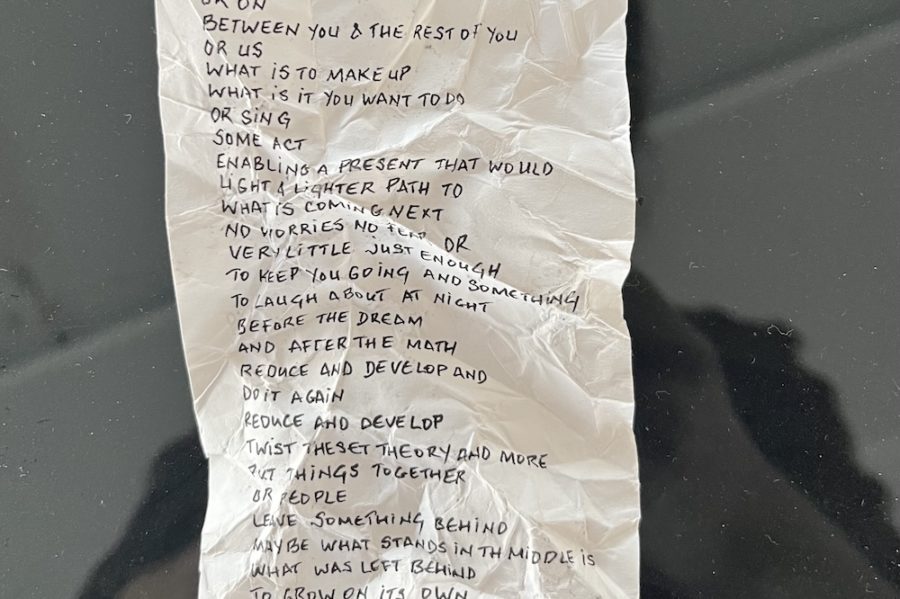 OR ON
BETWEEN YOU & THE REST OF YOU
OR US
WHAT IS TO MAKE UP
WHAT IS IT YOU WANT TO DO
OR SING
SOME ACT
ENABLING A PRESENT THAT WOULD
LIGHT & LIGHTER PATH TO
WHAT IS COMING NEXT
NO WORRIES NO FEAR OR
VERY LITTLE JUST ENOUGH
TO KEEP YOU GOING AND SOMETHING
TO LAUGH ABOUT AT NIGHT
BEFORE THE DREAM
AND AFTER THE MATH
REDUCE AND DEVELOP AND
DO IT AGAIN
REDUCE AND DEVELOP
TWIST THE SET THEORY AND MORE
PUT THINGS TOGETHER
OR PEOPLE
LEAVE SOMETHING BEHIND
MAYBE WHAT STANDS IN TH MIDDLE IS
WHAT WAS LEFT BEHIND
TO GROW ON ITS OWN